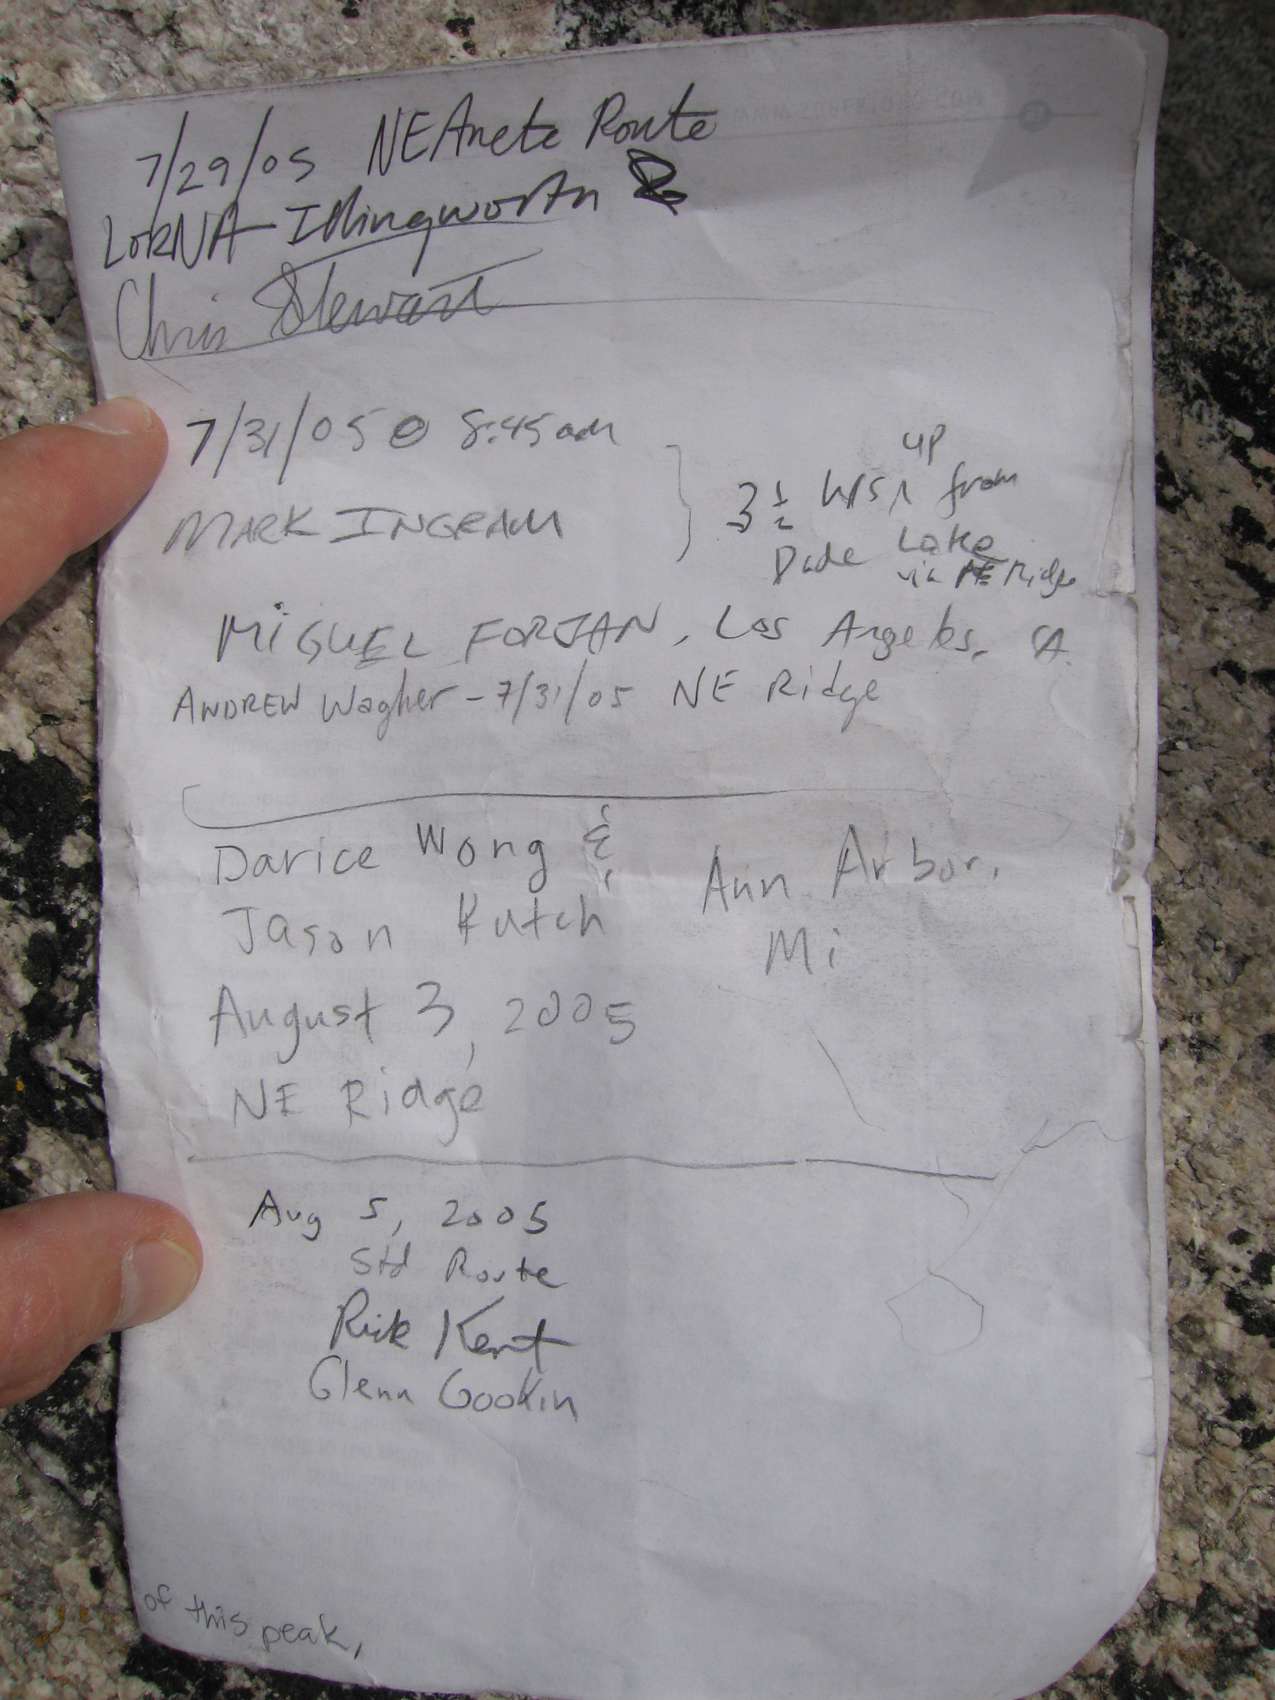 7/29/05 NE Arete Route
LORNA Illingworth &
Chris Stewart
7/31/05 @ 8:45am
MARK INGRAM
3½ hrs up from
Dade Lake
via NE Ridge
MIGUEL FORJAN, Los Angeles, CA.
ANDREW Wagher - 7/31/05 NE Ridge
Darice Wong &
Jason Kutch
Ann Arbor,
Mi
August 3, 2005
NE Ridge
Aug 5, 2005
Std Route
Rick Kent
Glenn Gookin
of this peak,